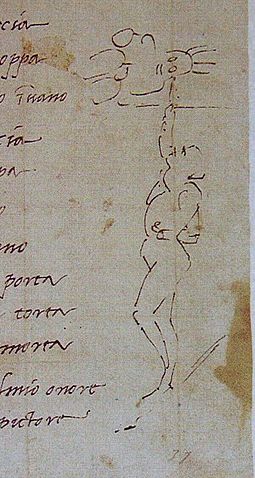 ecia
oppa
o
pa
o
ano
porta
torta
morta
lmio onore
pictore